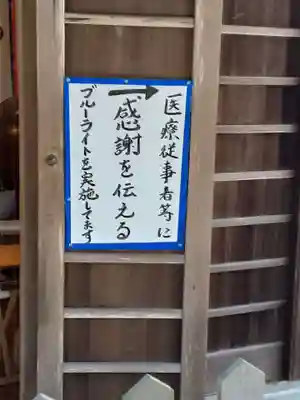 医療従事者等に
感謝を伝える
ブルーライトを実施してます